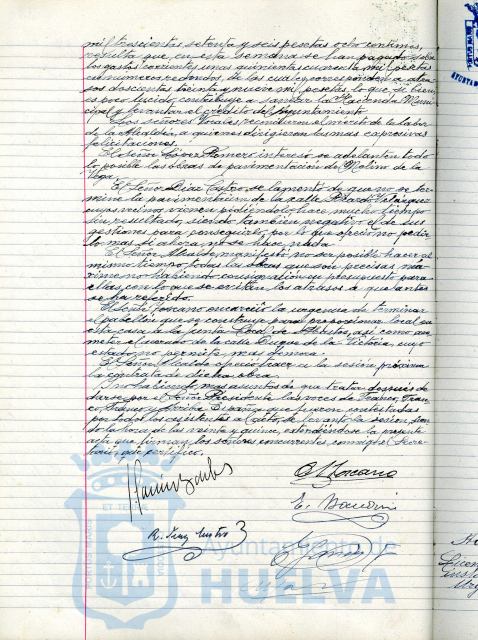 mil trescientas setenta y seis pesetas ocho centimos,
resulta que en esta semana se han pagado sobre
los gastos corrientes unas quinientas cincuenta mil pesetas
en numeros redondos, de las cuales corresponden a atra-
sos doscientas treinta y nueve mil pesetas, lo que si bien
es poco lucido, contribuye a sanear la Hacienda Muni-
cipal y levantar el credito del Ayuntamiento.
Los señores Vocales reconocieron el merito de la labor
de la Alcaldia, a quienes dirigieron las mas expresivas
felicitaciones.
El señor Lopez Romero intereso se adelanten todo
lo posible las obras de pavimentacion de Molino de la
Vega.
El Señor Diaz Castro, se lamento de que no se ter-
mine la pavimentacion de la calle Velazquez
cuyos vecinos vienen pidiendolo hace mucho tiempo
sin resultado, siendo tambien negativo el de sus
gestiones para conseguirlo, por lo que ofrecio no pedir-
lo mas si ahora no se hace nada.
El Señor Alcalde manifesto no ser posible hacer al
mismo tiempo todas las obras que son precisas ma-
xime no habiendo consignacion en presupuesto para
ellas, con lo que se evitan los atrasos a que antes
se ha referido.
El Señor encarecio la urgencia de terminar
el pabellon que se construye para proporcionar local en
esta casa a la Junta Local de Abastos, asi como aco-
meter el acerado de la calle Duque de la Victoria, cuyo
estado no permite mas demora.
El Señor Alcalde ofrecio traer a la sesion proxima
la contrata de dicha obra.
Y no habiendo mas asuntos de que tratar despues de
darse por el Señor Presidente las voces de Franco, Fran-
co, Franco y Arriba España que fueron contestadas
por todos los asistentes al acto, se levanto la sesion, sien-
do la hora de las veinte y quince, extendiendose la presente
acta que firman los señores concurrentes conmigo el Secre-
tario, que certifico.
R. Diaz Castro
Ayuntamiento de
HUELVA